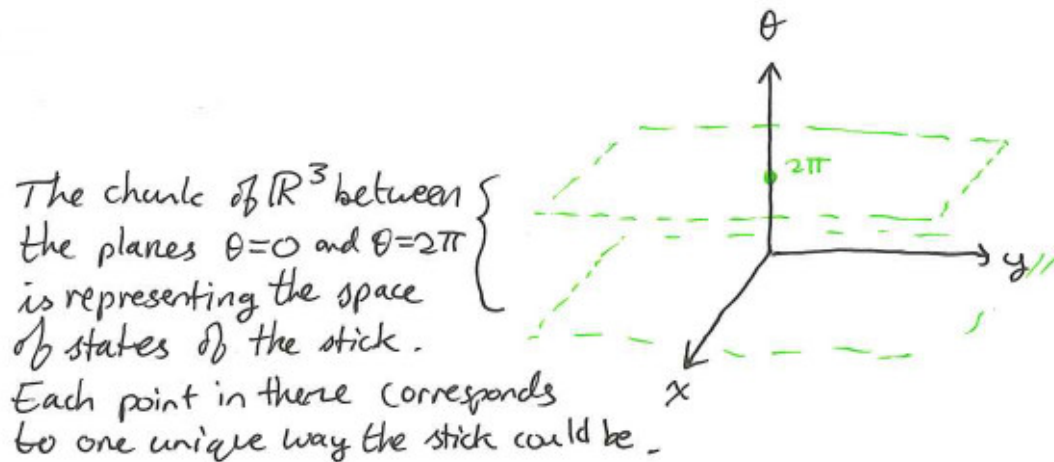 θ
2π
The chunk of ℝ³ between
the planes θ=0 and θ=2π
is representing the space
of states of the stick.
Each point in there corresponds
to one unique way the stick could be.
y
x